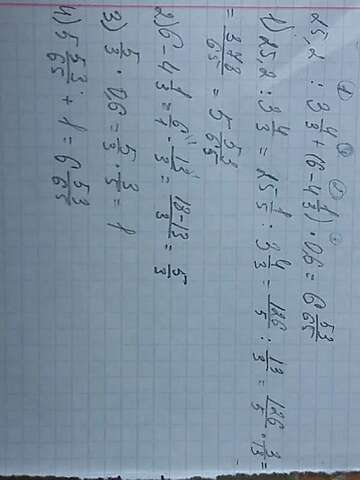 25,2 : 3 4/3 + (6 - 4 1/3) · 0,6 = 6 53/65
1) 25,2 : 3 4/3 = 25 1/5 : 3 4/3 = 126/5 : 13/3 = 126/5 · 3/13 =
= 378/65 = 5 53/65
2) 6 - 4 1/3 = 6/1 - 13/3 = (18-13)/3 = 5/3
3) 5/3 · 0,6 = 5/3 · 3/5 = 1
4) 5 53/65 + 1 = 6 53/65